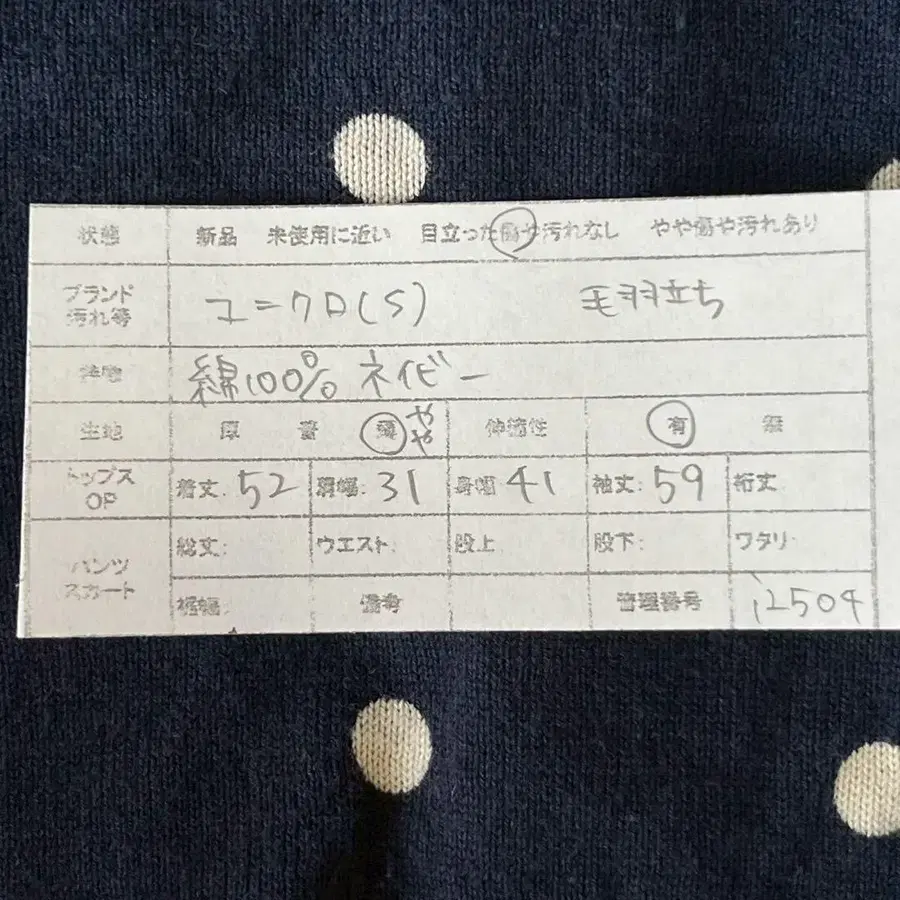 状態 新品 未使用に近い 目立った傷や汚れなし やや傷や汚れあり
ブランド
汚れ等 ユニクロ(S) 毛羽立ち
綿100% ネイビー
生地 厚 普 薄 やや 伸縮性 有 無
トップス
OP 着丈: 52 肩幅: 31 身幅 41 袖丈: 59 裄丈
パンツ
スカート 総丈: ウエスト: 股上 股下: ワタリ
裾幅: 備考 管理番号 i2504